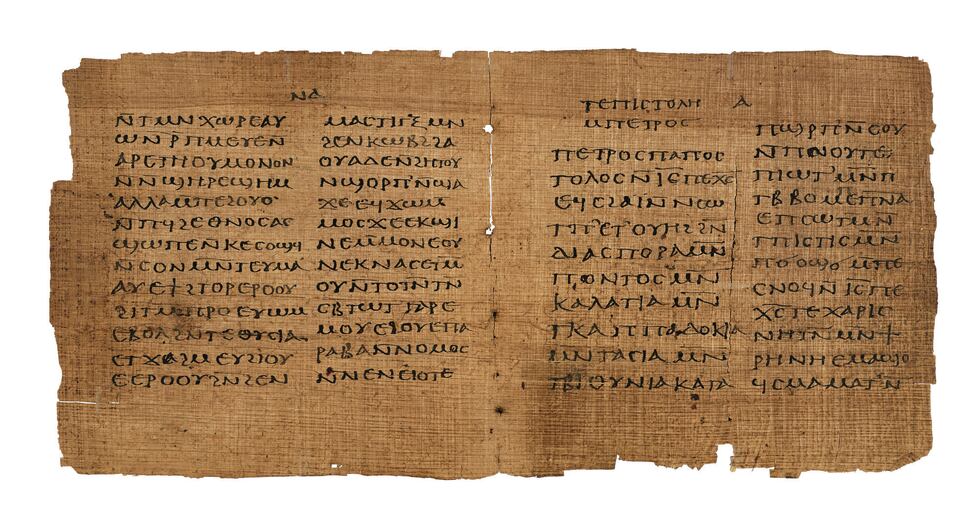 ⲛⲁ
ⲛ̄ⲧⲙⲛⲭⲱⲣⲉⲁⲩ
ⲱⲛⲣ̄ⲡⲙⲉⲩⲉⲛ
ⲁⲣⲉⲧⲏⲟⲩⲙⲟⲛⲟⲛ
ⲛⲛϣⲏⲣⲉϣⲏⲙ
ⲁⲗⲗⲁⲙⲡⲉϩⲟⲩⲟ
ⲛ̄ⲡϥϩⲉⲑⲛⲟⲥⲁⲥ
ϣⲱⲡⲉⲛⲕⲉⲥⲟϣϥ
ⲛⲥⲟⲛⲙⲛⲧⲉⲩⲙⲁ
ⲁⲩⲉϯϩⲧⲟⲣⲉⲣⲟⲟⲩ
ϩⲓⲧⲙⲡⲣⲟⲉⲩⲱⲙ
ⲉⲃⲟⲗϩⲛⲧⲉⲑⲩⲥⲓⲁ
ⲉⲧϫⲁϩⲙⲉⲩϩⲓⲟⲩ
ⲉⲉⲣⲟⲟⲩϩⲛϩⲉⲛ
ⲙⲁⲥⲧⲓⲅⲝⲙⲛ
ϩⲉⲛⲕⲱⲃϩϩⲁ
ⲟⲩⲁⲇⲉⲛϩⲏⲧⲟⲩ
ⲛϣⲟⲣⲡⲛ̄ϣⲁ
ϫⲉⲉϥϫⲱⲙ
ⲙⲟⲥϫⲉⲉⲕϣⲓ
ⲛⲉⲙ̄ⲙⲟⲛⲉⲟⲩ
ⲛⲉⲕⲛⲁⲥⲉⲓⲙ
ⲟⲩⲛⲧⲟⲓⲛⲧⲛ
ⲥⲃⲧⲱⲧⲅⲁⲣⲉ
ⲙⲟⲩⲉϩⲟⲩⲉⲡⲁ
ⲣⲁⲃⲁⲛⲛⲟⲙⲟⲥ
ⲛ̄ⲛⲉⲛⲉⲓⲟⲧⲉ
ⲧⲉⲡⲓⲥⲧⲟⲗⲏ ⲁ
ⲙⲡⲉⲧⲣⲟⲥ
ⲡⲉⲧⲣⲟⲥⲡⲁⲡⲟⲥ
ⲧⲟⲗⲟⲥⲛⲓ̄ⲥ̄ⲡⲉⲭ̄ⲥ̄
ⲉϥⲥϩⲁⲓⲛⲛⲥⲱ
ⲧⲡⲉⲧⲟⲩⲏϩϩⲛ
ⲇⲓⲁⲥⲡⲟⲣⲁⲙ̄ⲛ̄
ⲡⲟⲛⲧⲟⲥⲙⲛ
ⲕⲁⲗⲁⲧⲓⲁⲙⲛ
ⲧⲕⲁⲡⲡⲁⲇⲟⲕⲓⲁ
ⲙⲛⲧⲁⲥⲓⲁⲙⲛ
ⲧⲃⲓⲑⲩⲛⲓⲁⲕⲁⲧⲁ
ⲡϣⲣⲡⲛ̄ⲥⲟⲩ
ⲛ̄ⲡⲛⲟⲩⲧⲉ
ⲡⲓⲱⲧⲙⲛⲡ
ⲧⲃⲃⲟⲙⲡⲉⲡⲛⲁ
ⲉⲡⲥⲱⲧⲙⲛ
ⲧⲡⲓⲥⲧⲓⲥⲙⲛ
ⲡⲟⲩⲱϣⲙⲡⲉ
ⲥⲛⲟϥⲛⲓ̄ⲥ̄ⲡⲉ
ⲭ̄ⲥ̄ⲧⲉⲭⲁⲣⲓⲥ
ⲛⲏⲧⲛⲙⲛϯ
ⲣⲏⲛⲏⲉⲙⲁϣⲟ
ϥⲥⲙⲁⲙⲁⲧⲛ̄